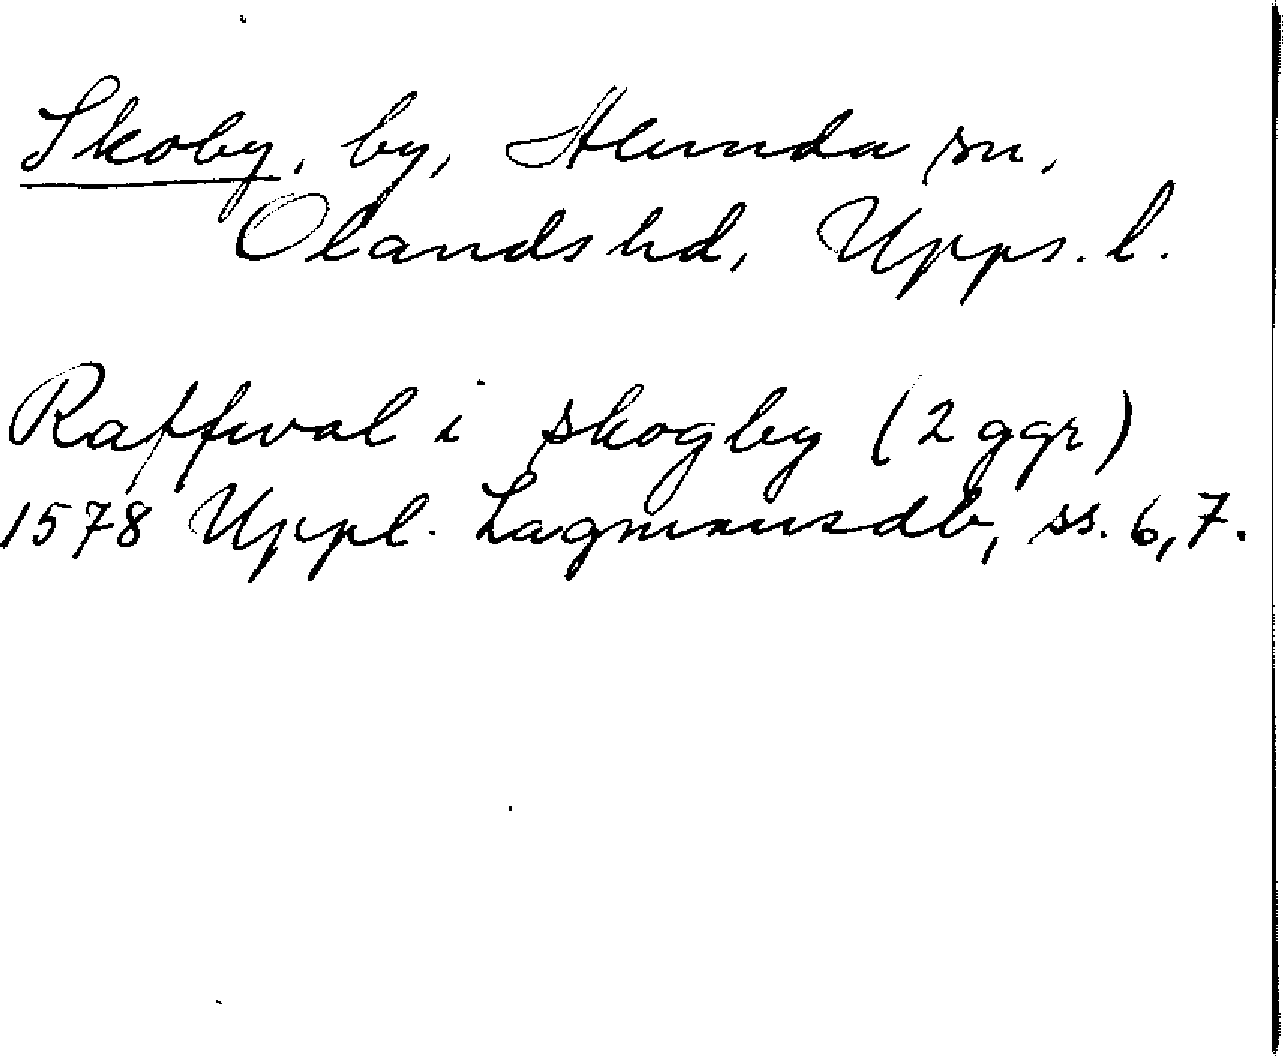 Skoby, by, Alunda sn,
Olands hd, Upps. l.
Raffwal i skogby (2 ggr)
1578 Uppl. Lagmansdb, ss. 6, 7.